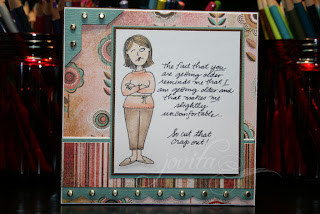 The fact that you
are getting older
reminds me that I
am getting older and
that makes me
slightly
uncomfortable.
So cut that
crap out!